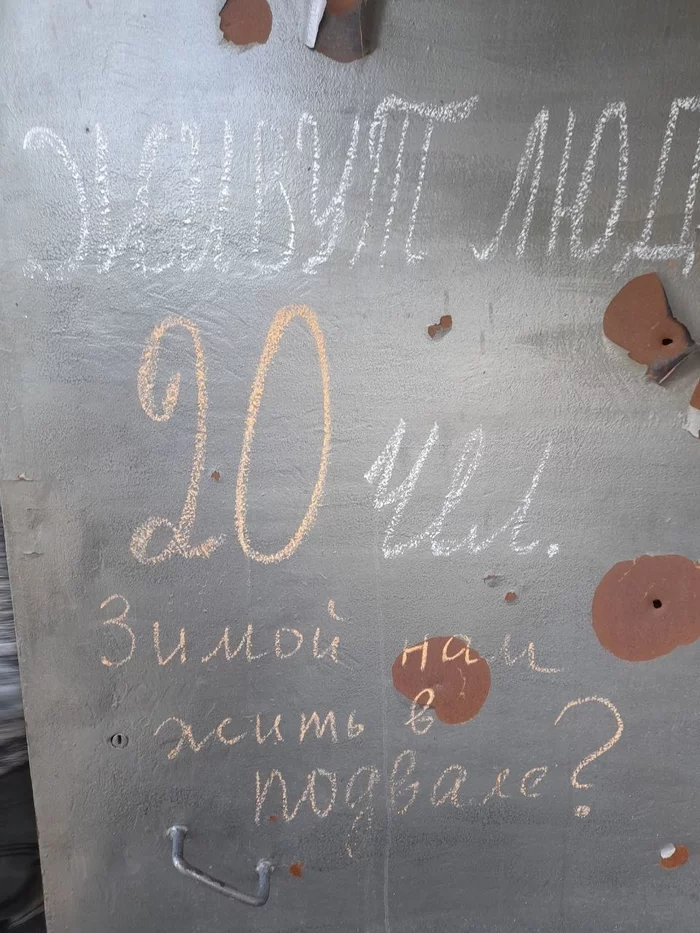 ЖИВУТ ЛЮД
20 чел.
Зимой нам
жить в
подвале?